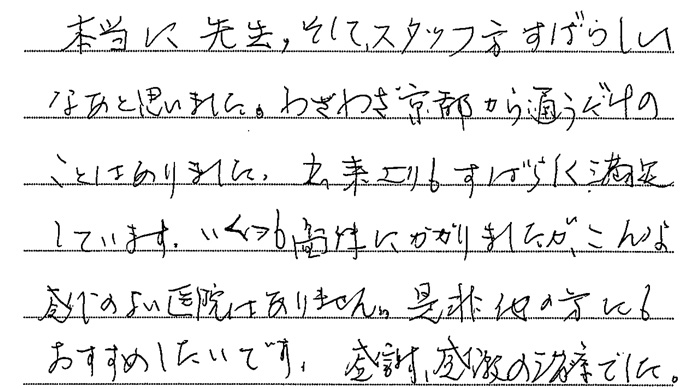 本当に先生、そして、スタッフ方すばらしい
なあと思いました。わざわざ京都から通うだけの
ことはありました。出来上りもすばらしく満足
しています。いくつも歯体にかかりましたが、こんな
感じのよい医院はありません。是非他の方にも
おすすめしたいです。感謝、感激の治療でした。